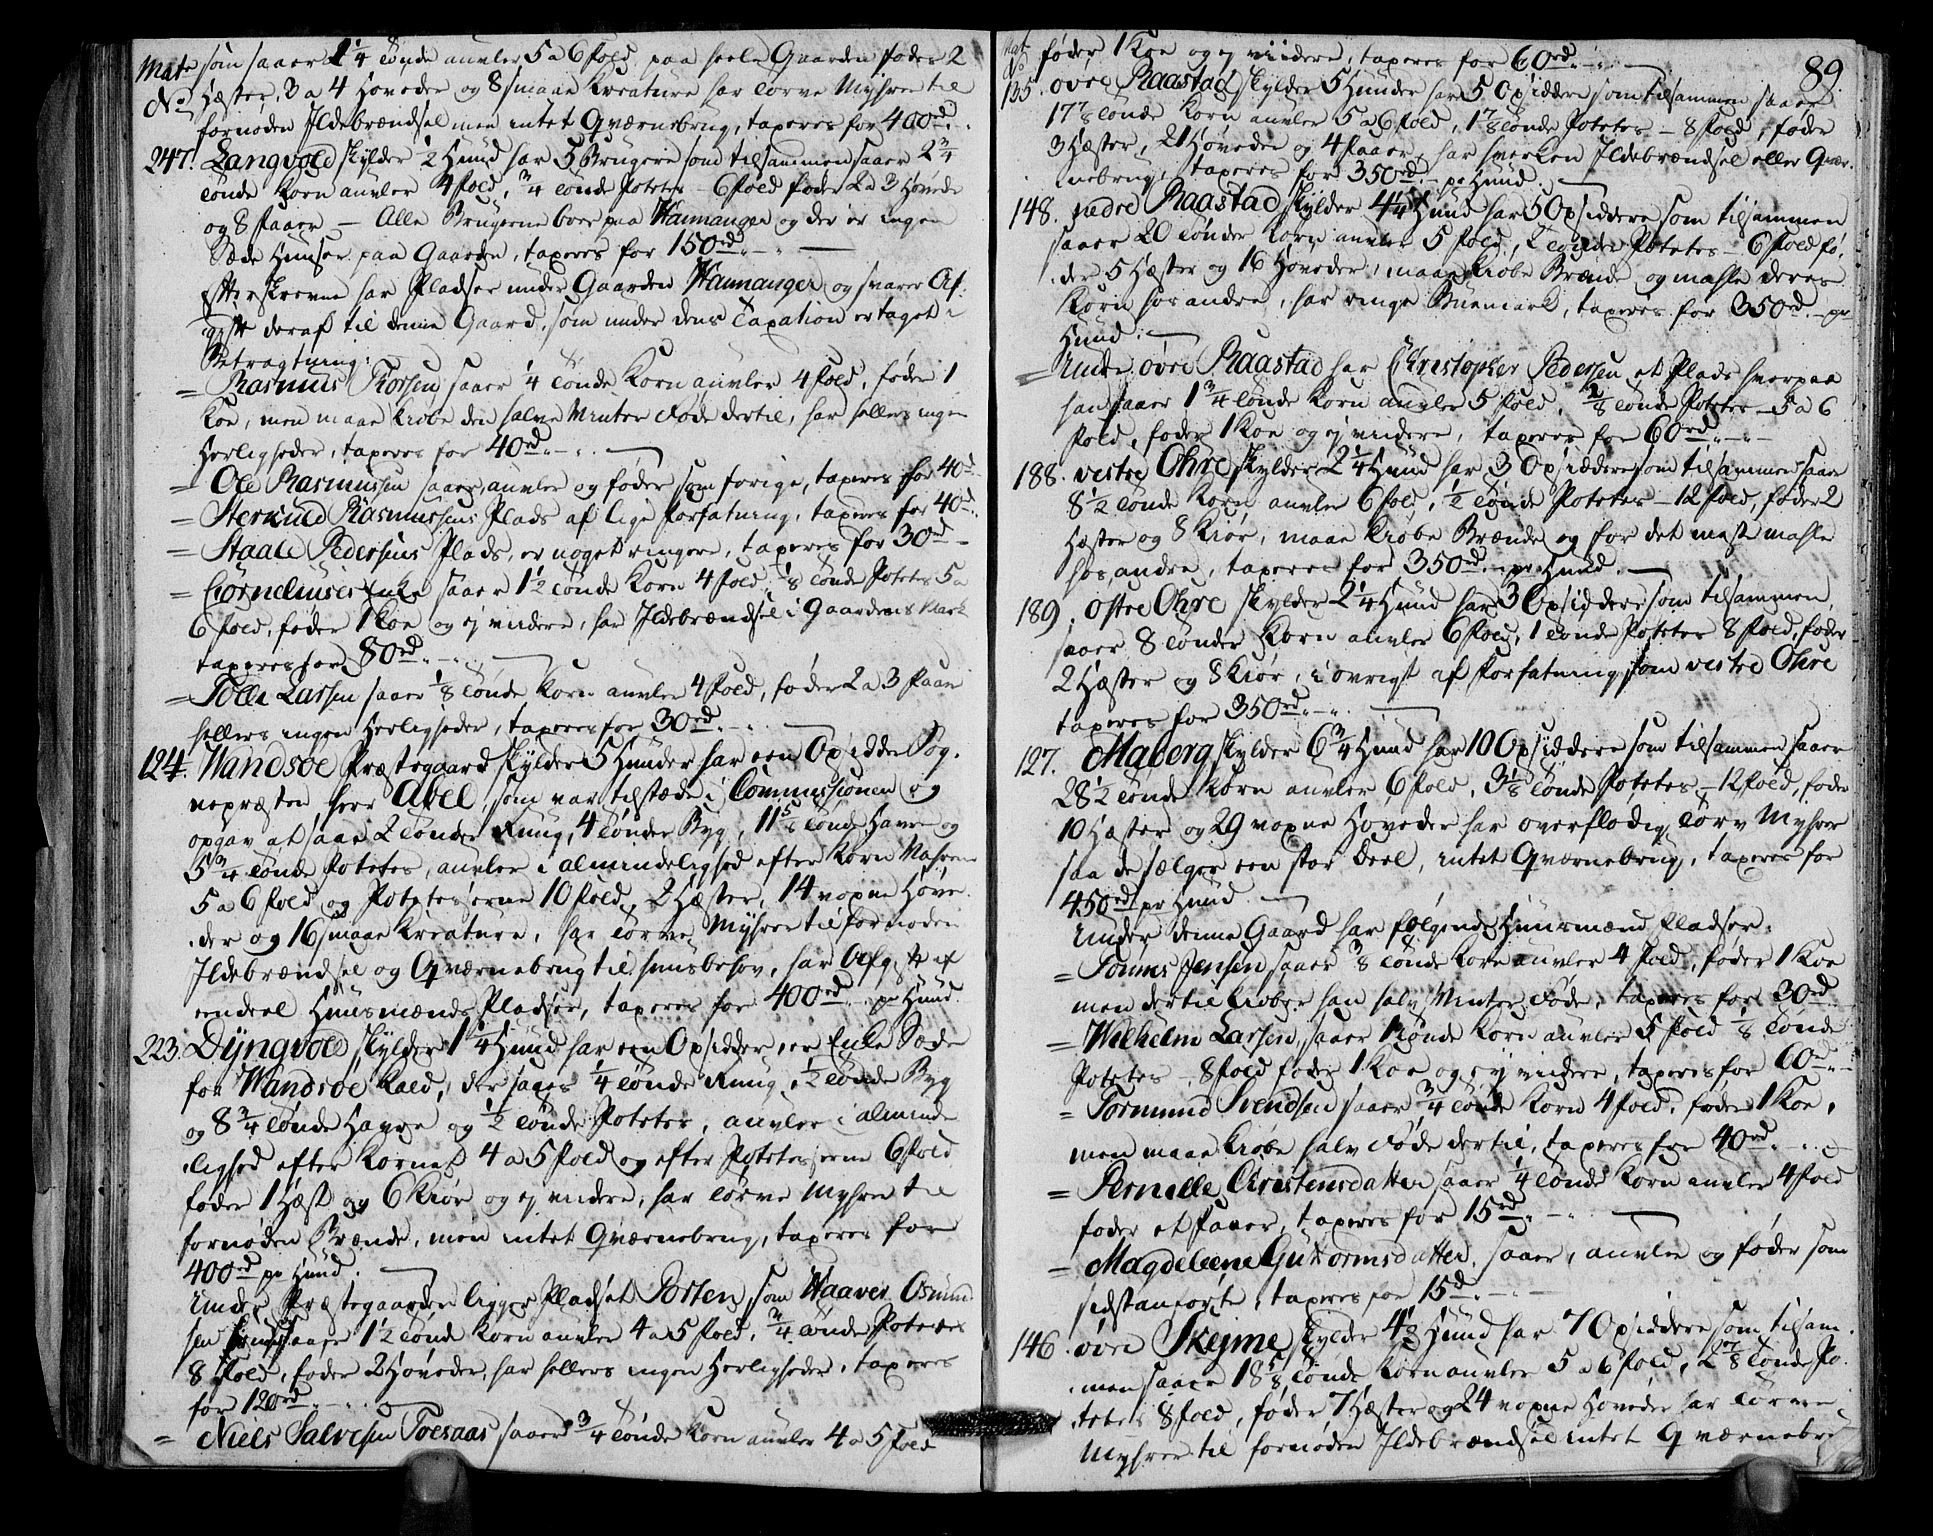 Mat. som saaer 1 1/4 Tønde auvler 5 a 6 fold paa heele Gaarden føder 2
No Hæster, 3 a 4 Høveder og 8 smaae Kreature har Torve Myhrer til
fornøden Ildebrændsel men intet Qværnebrug, taxeres for 400rd.
247. Langvold skylder 1/2 Hund har 5 Brugere som tilsammen saaer 2 3/4
Tønde Korn auvler 4 fold, 3/4 Tønde Potetes 6 fold føder 2 a 3 Høvede
og 8 Faarr – Alle Brugerne boer paa Wannanger og der er ingen
Sæde Huuser paa Gaarden, taxeres for 150rd
Efterskrevne har Pladser under Gaarden Wannanger og svarer Af-
gift deraf til denne Gaard, som under dens Taxation er taget i
Betragtning:
= Rasmus Torsen saaer 1/4 Tønde Korn auvler 4 fold, føder 1
Koe, men maae kiøbe den halve Winter Føde dertil, har hellers ingen
Herligheder, taxeres for 40rd
= Ole Rasmussen saaer, auvler og føder som forige, taxeres for 40rd
= Sterkild Rasmussens Plads af lige Forfatning, taxeres for 40rd
= Staale Pedersens Plads, er noget ringere, taxeres for 30rd
= Cornelius's Enke saaer 1 1/2 Tønde Korn 4 fold, 1/8 Tønde Potetes 5 a
6 fold, føder 1 Koe og ej viidere, har Ildebrændsel i Gaardens Mark
taxeres for 80rd
= Tolle Larsen saaer 1/8 Tønde Korn auvler 4 fold, føder 2 a 3 Faarr
hellers ingen Herligheder, taxeres for 30rd
124. Wandsøe Præstegaard skylder 5 Hunder har een Opsidder Sog-
nepræsten Herr Abel, som var tilstæde i Commissionen og
opgav at saae 2 Tønder Ruug, 4 Tønder Byg, 11 5/8 Tønde Havre og
5 3/4 Tønde Potetes, auvler i almindelighed efter Korn Vahrene
5 a 6 fold og Poteteserne 10 fold, 2 Hæster, 14 voxne Høve-
der og 16 smaae Kreature, har Torve Myhrer til fornøden
Ildebrændsel og Qværnebrug til huusbehov, har Afgift af
eendeel Huusmænds Pladser, taxeres for 400rd pr Hund.
223. Dÿngvold skylder 1 1/4 Hund har een Opsidder, er Enke Sæde
for Wandsøe Kald, der saaes 1/4 Tønde Ruug, 1/2 Tønde Byg
og 8 3/4 Tønde Havre og 1/2 Tønde Potetes, auvler i alminde-
lighed efter Kornet 4 a 5 fold og efter Poteteserne 6 fold
føder 1 Hæst og 6 Kiør og ej viidere, har Torve Myhrer til
fornøden Brænde, men intet Qværnebrug, taxeres for
400rd pr Hund.
Under Præstegaarden ligger Pladset Porten, som Waaver Osmund-
sen saaer 1 1/2 Tønde Korn auvler 4 a 5 fold, 3/4 Tønde Potetes
8 fold, føder 2 Høveder, har hellers ingen Herligheder, taxeres
for 120rd
= Niels Salvesen Toesaas saaer 3/4 Tønde Korn auvler 4 a 5 fold
89.
Mat. føder 1 Koe og ej viidere, taxeres for 60rd
No
135. øvre Raastad skylder 5 Hunder har 5 Opsiddere som tilsammen saaer
17 7/8 Tønde Korn auvler 5 a 6 fold, 1 7/8 Tønde Potetes – 8 fold, føder
3 Hæster, 21 Høveder og 4 Faarr, har hverken Ildebrændsel eller Qvær-
nebrug, taxeres for 350rd pr Hund.
148. nedre Raastad skylder 4 1/4 Hund har 5 Opsiddere som tilsammen
saaer 20 Tønder Korn auvler 5 fold, 2 Tønder Potetes – 6 fold fø-
der 5 Hæster og 16 Høveder, maae kiøbe Brænde og mahle deres
Korn hos andre, har ringe Buemark, taxeres for 350rd – pr
Hund.
= Under øvre Raastad har Christopher Pedersen et Plads hvorpaa
han saaer 1 3/4 Tønde Korn auvler 5 fold, 2/8 Tønde Potetes – 5 a 6
fold, føder 1 Koe og ej viidere, taxeres for 60rd
188. vestre Ohre skylder 2 1/4 Hund har 3 Opsiddere som tilsammen saaer
8 1/2 Tønde Korn auvler 6 fold, 1/2 Tønde Potetes – 12 fold, føder 2
Hæster og 8 Kiør, maae kiøbe Brænde og for det maste mahle
hos andre, taxeres for 350rd pr Hund.
189. østre Ohre skylder 2 1/4 Hund har 3 Opsiddere som tilsammen
saaer 8 Tønder Korn auvler 6 fold, 1 Tønde Potetes 8 fold, føder
2 Hæster og 8 Kiør, i øvrigt af Forfatning som vestre Ohre
taxeres for 350rd
127. Maberg skylder 6 3/4 Hund har 10 Opsiddere som tilsammen saaer
28 1/2 Tønde Korn auvler 6 fold, 3 1/8 Tønde Potetes – 12 fold, føder
10 Hæster og 29 voxne Høveder har overflødig Torv Myhrer
saa de sælger een stor Deel, intet Qværnebrug, taxeres for
450rd pr Hund.
Under denne Gaard har følgende Huusmænd Pladser:
= Tønnes Jensen saaer 3/8 Tønde Korn auvler 4 fold, føder 1 Koe
men dertil kiøber han halv Winter Føde, taxeres for 30rd
= Wilhelm Larsen, saaer 1 Tønde Korn auvler 5 fold 1/8 Tønde
Potetes – 8 fold føder 1 Koe og ej viidere, taxeres for 60rd
= Tormund Svendsen saaer 3/4 Tønde Korn 4 fold, føder 1 Koe,
men maae kiøbe halv Føde dertil, taxeres for 40rd
= Pernille Christensdatter saaer 1/4 Tønde Korn auvler 4 fold
føder et Faaer, taxeres for 15rd
= Magdeleene Guttormsdatter, saaer, auvler og føder som
sidstanførte, taxeres for 15rd
146. øvre Skejme skylder 4 1/8 Hund har 7 Opsiddere som tilsam-
men saaer 18 5/8 Tønde Korn auvler 5 a 6 fold, 2 7/8 Tønde Po-
tetes 8 fold, føder 7 Hæster og 24 voxne Høveder har Torve
Myhrer til fornøden Ildebrændsel intet Qværnebrug